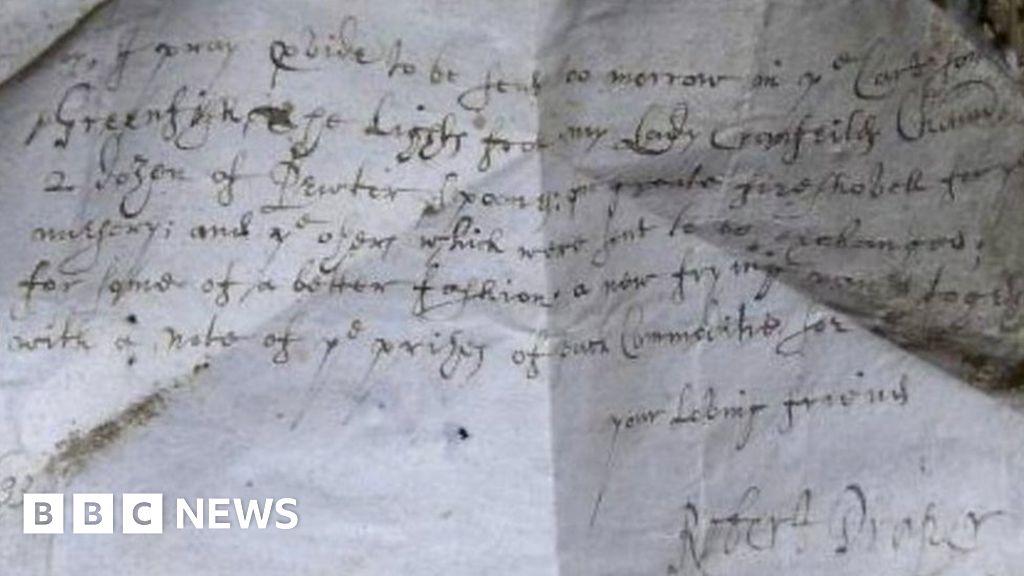 I pray pvide to be sent too morrow in yᵉ Cart some
Greenfish, The Lights from my Lady Cranfeilds Cham
2 dozen of Pewter spoons: greate fireshovell for yᵉ
nursery; and yᵉ others which were sent to be exchanged
for some of a better fashion, a new frying pan together
with a note of yᵉ prises of such Commodities for
your loving friend
Robert Draper
BBC NEWS